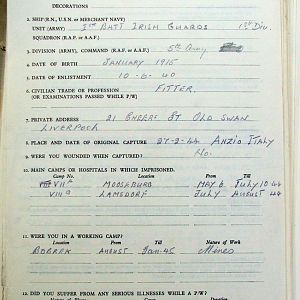 DECORATIONS
2. SHIP (R.N., U.S.N. or MERCHANT NAVY)
UNIT (ARMY) 1ST BATT IRISH GUARDS 1ST DIV.
SQUADRON (R.A.F. or A.A.F.)
3. DIVISION (ARMY), COMMAND (R.A.F. or A.A.F.) 5th Army
4. DATE OF BIRTH JANUARY 1915
5. DATE OF ENLISTMENT 10-6-40
6. CIVILIAN TRADE OR PROFESSION FITTER.
(OR EXAMINATIONS PASSED WHILE P/W)
7. PRIVATE ADDRESS 21 ST OLD SWAN
LIVERPOOL
8. PLACE AND DATE OF ORIGINAL CAPTURE 27-2-44 ANZIO ITALY
9. WERE YOU WOUNDED WHEN CAPTURED? No.
10. MAIN CAMPS OR HOSPITALS IN WHICH IMPRISONED.
Camp No. Location From Till
VIIA MOOSEBURG MAY 6 JULY 10 44
VIIIB LAMSDORF JULY AUGUST 44
11. WERE YOU IN A WORKING CAMP?
Location From Till Nature of Work
AUGUST Jan-45 Mines
12. DID YOU SUFFER FROM ANY SERIOUS ILLNESSES WHILE A P/W?